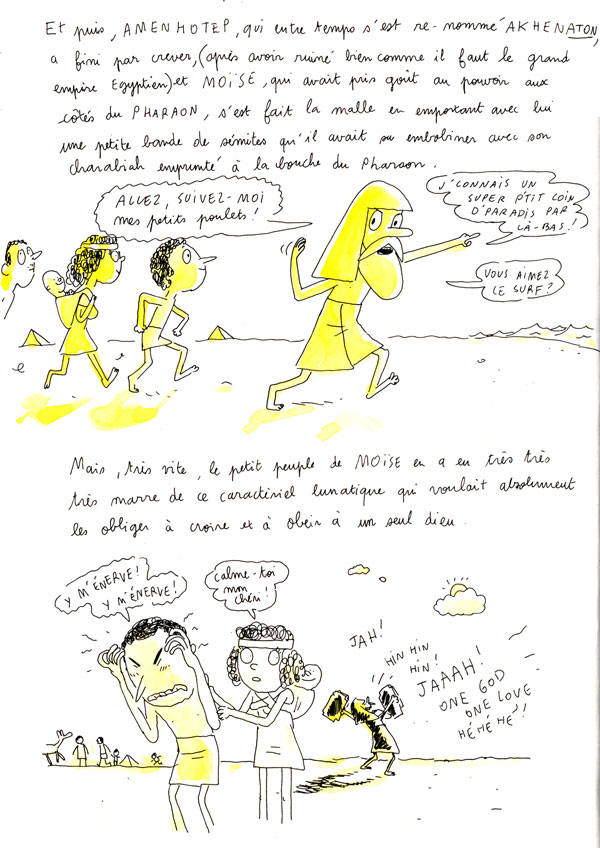 Et puis, AMENHOTEP, qui entre temps s'est re-nommé AKHENATON,
a fini par crever, (après avoir ruiné bien comme il faut le grand
empire Egyptien) et MOÏSE, qui avait pris goût au pouvoir aux
côtés du PHARAON, s'est fait la malle en emportant avec lui
une petite bande de sémites qu'il avait su embobiner avec son
charabiah emprunté à la bouche du Pharaon.
ALLEZ, SUIVEZ-MOI
mes petits poulets!
J'CONNAIS UN
SUPER P'TIT COIN
D'PARADIS PAR
LÀ-BAS!
VOUS AIMEZ
LE SURF?
Mais, très vite, le petit peuple de MOÏSE en a eu très très
très marre de ce caractériel lunatique qui voulait absolument
les obliger à croire et à obéir à un seul dieu.
Y M'ÉNERVE!
Y M'ÉNERVE!
Calme-toi
mon
chéri!
JAH!
HIN HIN
HIN!
JAAAH!
ONE GOD
ONE LOVE
HÉ HÉ HÉ!!